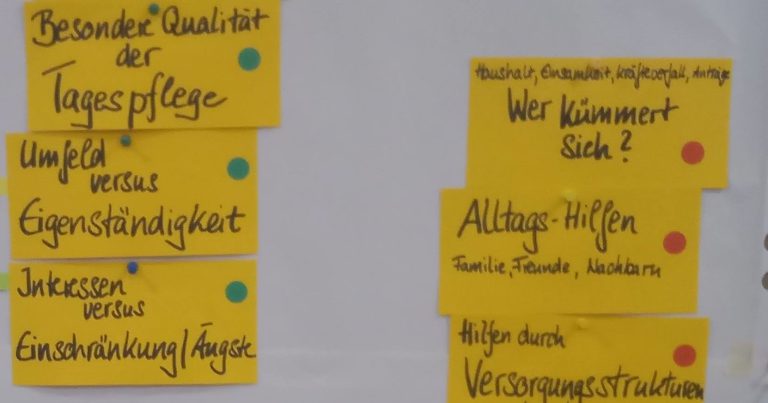 Besondere Qualität
der
Tagespflege
Umfeld
versus
Eigenständigkeit
Interessen
versus
Einschränkung/Ängste
Haushalt, Einsamkeit, Kräfteverfall, Anträge
Wer kümmert
sich?
Alltags-Hilfen
Familie, Freunde, Nachbarn
Hilfen durch
Versorgungsstrukturen